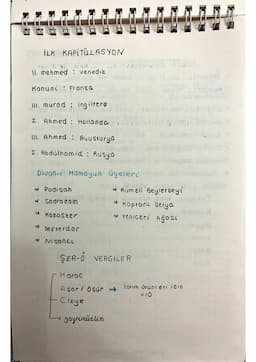 İLK KAPİTÜLASYON
II. mehmed : venedik
Kanuni : Fransa
III. murad : ingiltere
I. Ahmed : Hollanda
III. Ahmed : Avusturya
I. Abdülhamid : Rusya
Divan-ı Hümayun Üyeleri
Padişah
Sadrazam
Kazasker
Defterdar
Nişancı
Rumeli Beylerbeyi
Kaptanı Derya
Yeniçeri Ağası
ŞER-Û VERGİLER
Haraç
Aşar / Öşür → tarım ürünleri için
Cizye
gayrimüslim